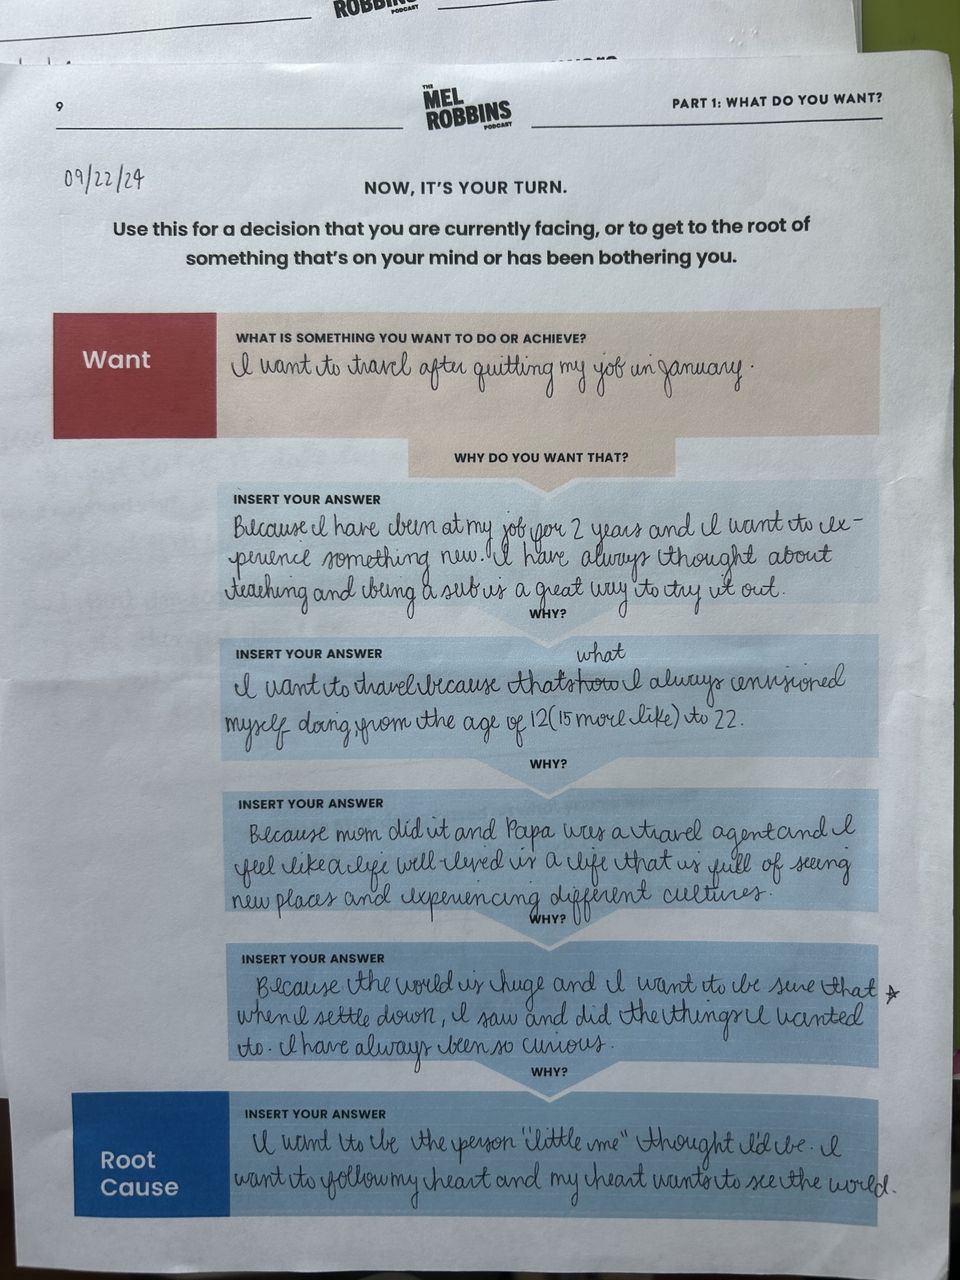 ROBBINS
PODCAST
9
THE
MEL
ROBBINS
PODCAST
PART 1: WHAT DO YOU WANT?
09/22/24
NOW, IT'S YOUR TURN.
Use this for a decision that you are currently facing, or to get to the root of
something that's on your mind or has been bothering you.
Want
WHAT IS SOMETHING YOU WANT TO DO OR ACHIEVE?
I want to travel after quitting my job in january.
WHY DO YOU WANT THAT?
INSERT YOUR ANSWER
Because I have been at my job for 2 years and I want to ex-
perience something new. I have always thought about
teaching and being a sub is a great way to try it out.
WHY?
INSERT YOUR ANSWER
what
I want to travel because thats how I always envisioned
myself doing, from the age of 12 (15 more like) to 22.
WHY?
INSERT YOUR ANSWER
Because mom did it and Papa was a travel agent and I
feel like a life well lived is a life that is full of seeing
new places and experiencing different cultures.
WHY?
INSERT YOUR ANSWER
Because the world is huge and I want to be sure that ☆
when I settle down, I saw and did the things I wanted
to. I have always been so curious.
WHY?
Root
Cause
INSERT YOUR ANSWER
I want to be the person "little me" thought I'd be. I
want to follow my heart and my heart wants to see the world.